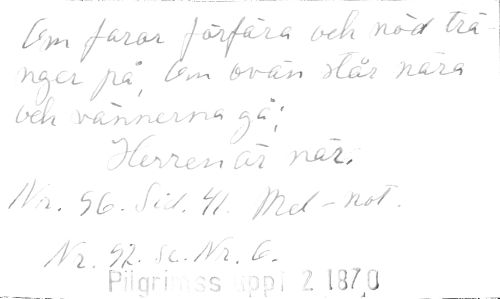 Om faror förfära och nöd trä-
nger på, Om ovän står nära
och vännerna gå;
Herren är när.
Nr. 96. Sid. 41. Md-not.
Nr. 92. sc. Nr. 6.
Pilgrimss uppl 2 1870